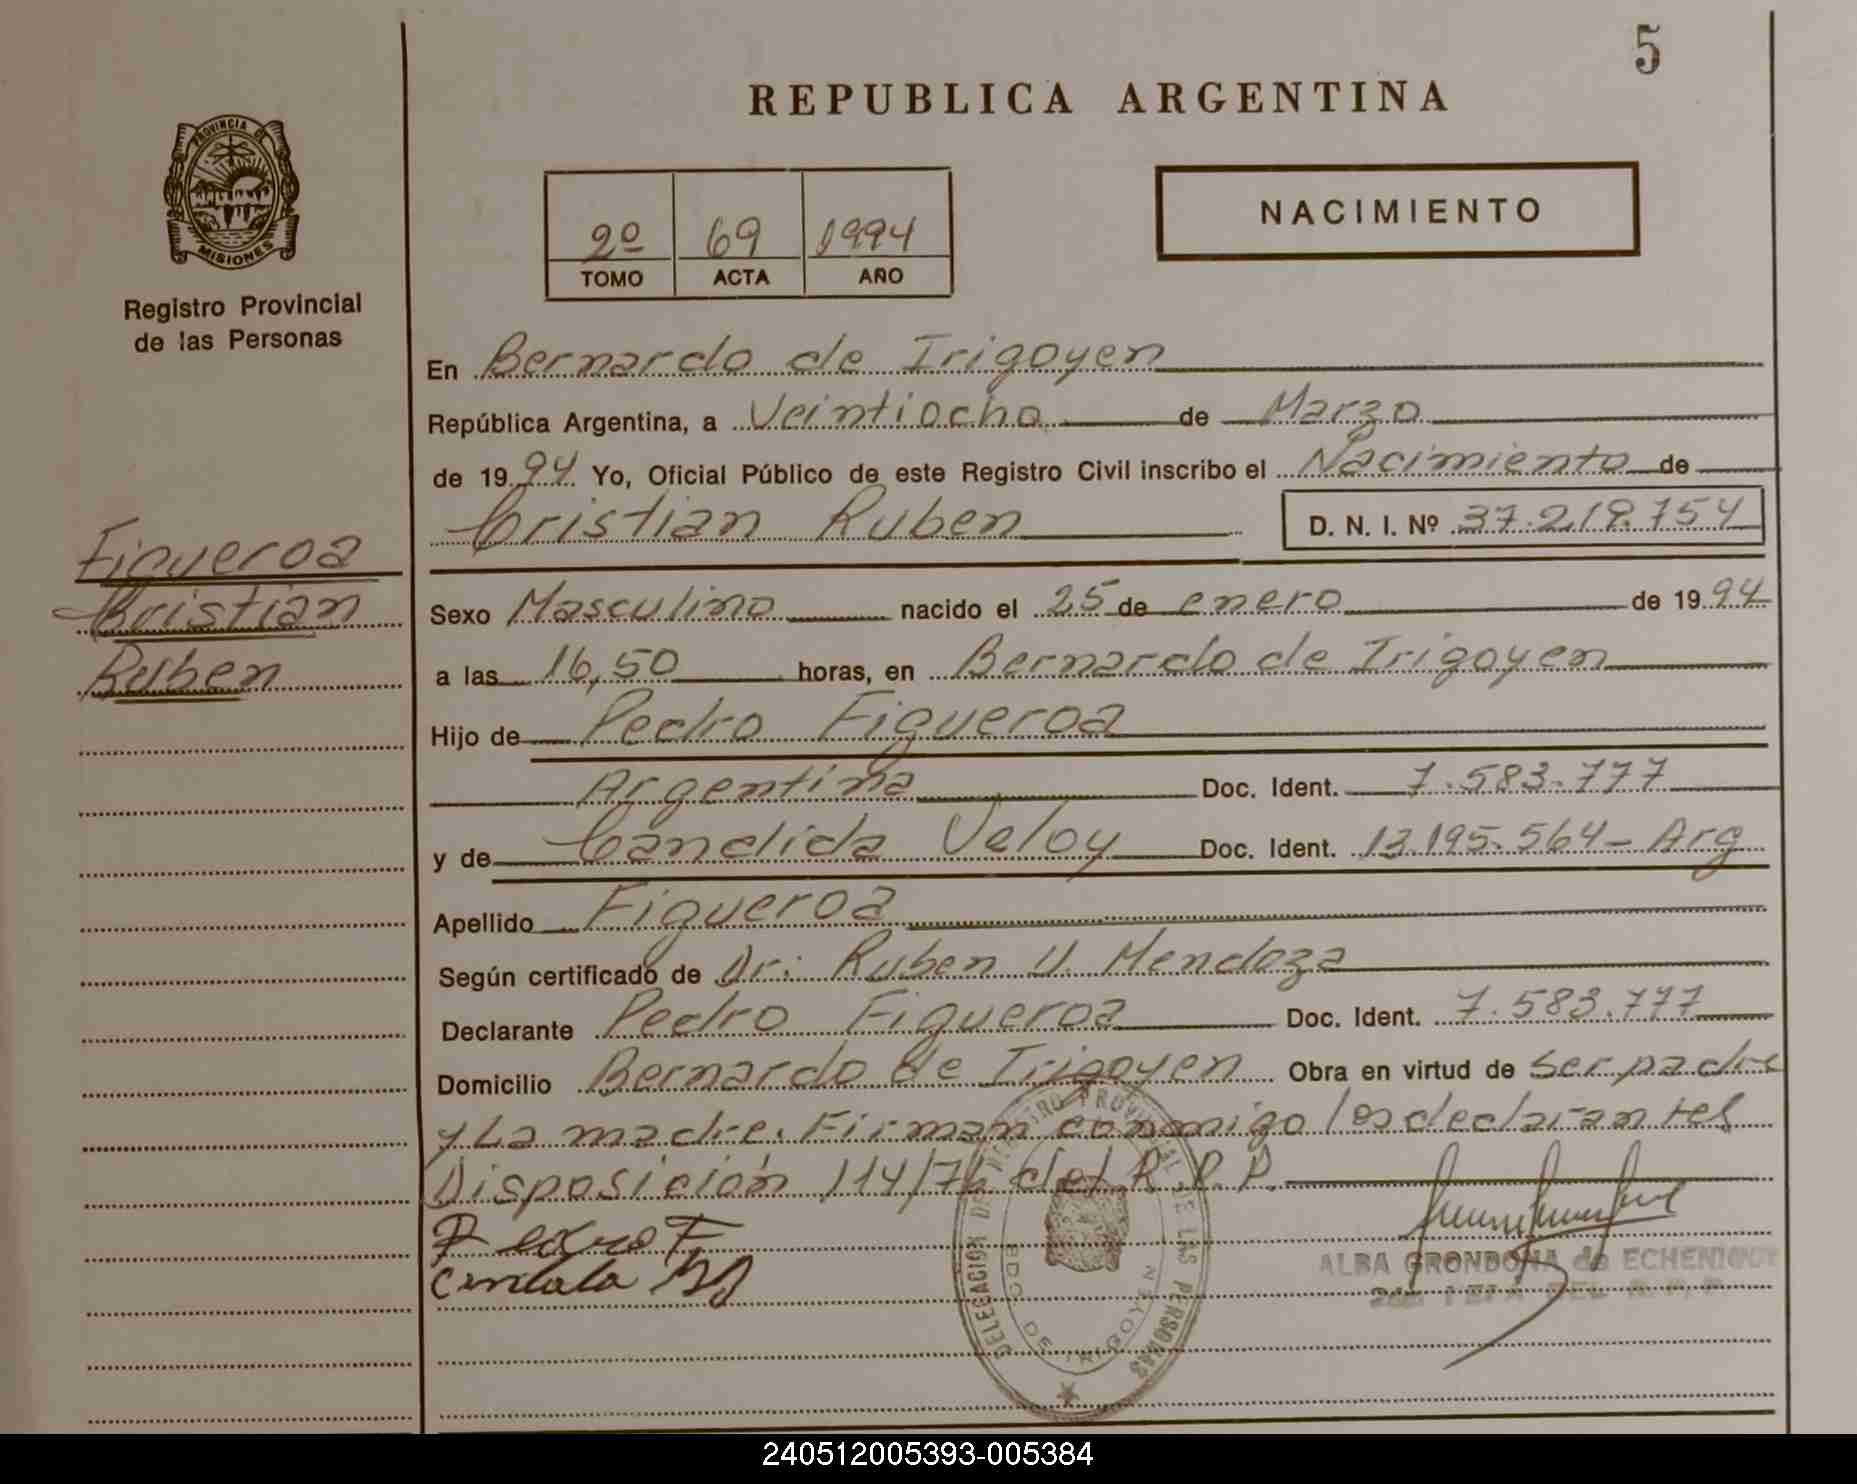 5
REPUBLICA ARGENTINA
PROVINCIA DE
MISIONES
Registro Provincial
de las Personas
NACIMIENTO
2º 69 1994
TOMO ACTA AÑO
En Bernardo de Irigoyen
República Argentina, a Veintiocho de Marzo
de 1994 Yo, Oficial Público de este Registro Civil inscribo el Nacimiento de
Cristian Ruben D. N. I. Nº 37.218.754
Figueroa
Cristian
Ruben
Sexo Masculino nacido el 25 de enero de 1994
a las 16,50 horas, en Bernardo de Irigoyen
Hijo de Pedro Figueroa
Argentina Doc. Ident. 7.583.777
y de Candida Veloy Doc. Ident. 13.195.564- Arg
Apellido Figueroa
Según certificado de Dr: Ruben U. Mendoza
Declarante Pedro Figueroa Doc. Ident. 7.583.777
Domicilio Bernardo de Irigoyen Obra en virtud de ser padre
y La madre. Firman conmigo los declarantes
Disposición 114/76 del R. P. P.
Pedro F
DELEGACION DEL REGISTRO PROVINCIAL DE LAS PERSONAS
BDO. DE IRIGOYEN
ALBA GRONDONA de ECHENIQUE
JEFA DEL R. P. P.
240512005393-005384